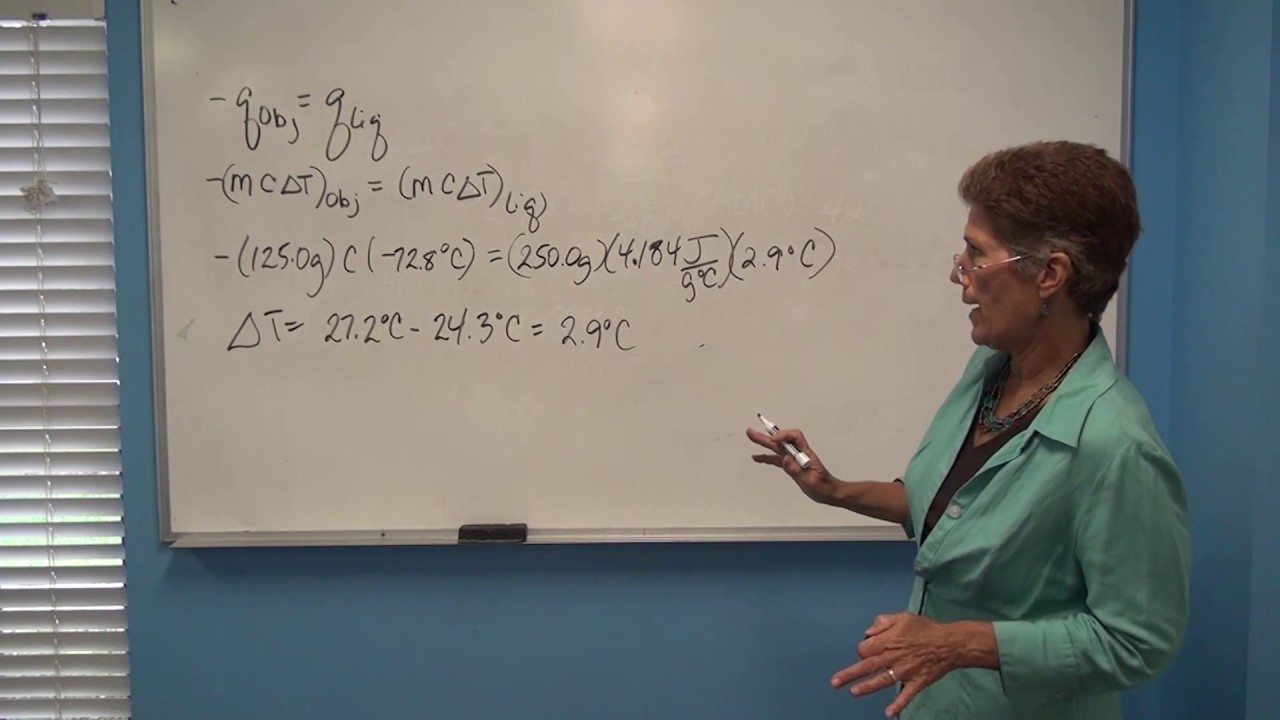 - qObj = qLiq
-(mCΔT)Obj = (mCΔT)Liq
-(125.0g) C (-72.8°C) = (250.0g)(4.184 J/g°C)(2.9°C)
ΔT = 27.2°C - 24.3°C = 2.9°C